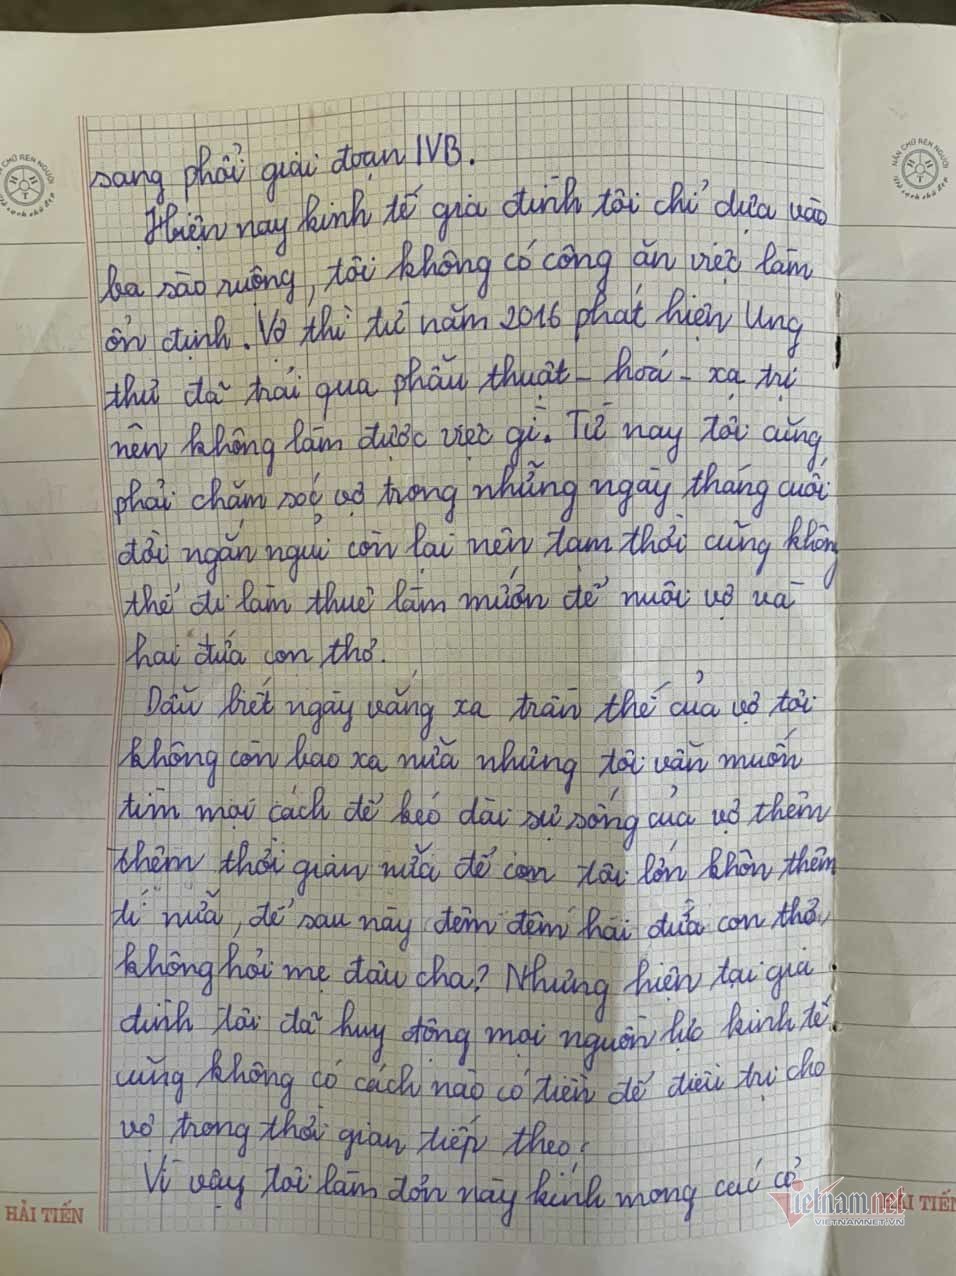 sang phổi giai đoạn IVB.
Hiện nay kinh tế gia đình tôi chỉ dựa vào
ba sào ruộng, tôi không có công ăn việc làm
ổn định. Vợ thì từ năm 2016 phát hiện Ung
thư đã trải qua phẫu thuật - hoá - xạ trị
nên không làm được việc gì. Từ nay tôi cũng
phải chăm sóc vợ trong những ngày tháng cuối
đời ngắn ngủi còn lại nên tạm thời cũng không
thể đi làm thuê làm mướn để nuôi vợ và
hai đứa con thơ.
Dẫu biết ngày vắng xa trần thế của vợ tôi
không còn bao xa nữa nhưng tôi vẫn muốn
tìm mọi cách để kéo dài sự sống của vợ thêm
thêm thời gian nữa để con tôi lớn khôn thêm
tí nữa, để sau này đêm đêm hai đứa con thơ
không hỏi mẹ đâu cha? Nhưng hiện tại gia
đình tôi đã huy động mọi nguồn lực kinh tế
cũng không có cách nào có tiền để điều trị cho
vợ trong thời gian tiếp theo.
Vì vậy tôi làm đơn này kính mong các cơ
HẢI TIẾN
HẢI TIẾN
NẮN CHỮ RÈN NGƯỜI
Vở sạch chữ đẹp
vietnamnet
VIETNAMNET.VN